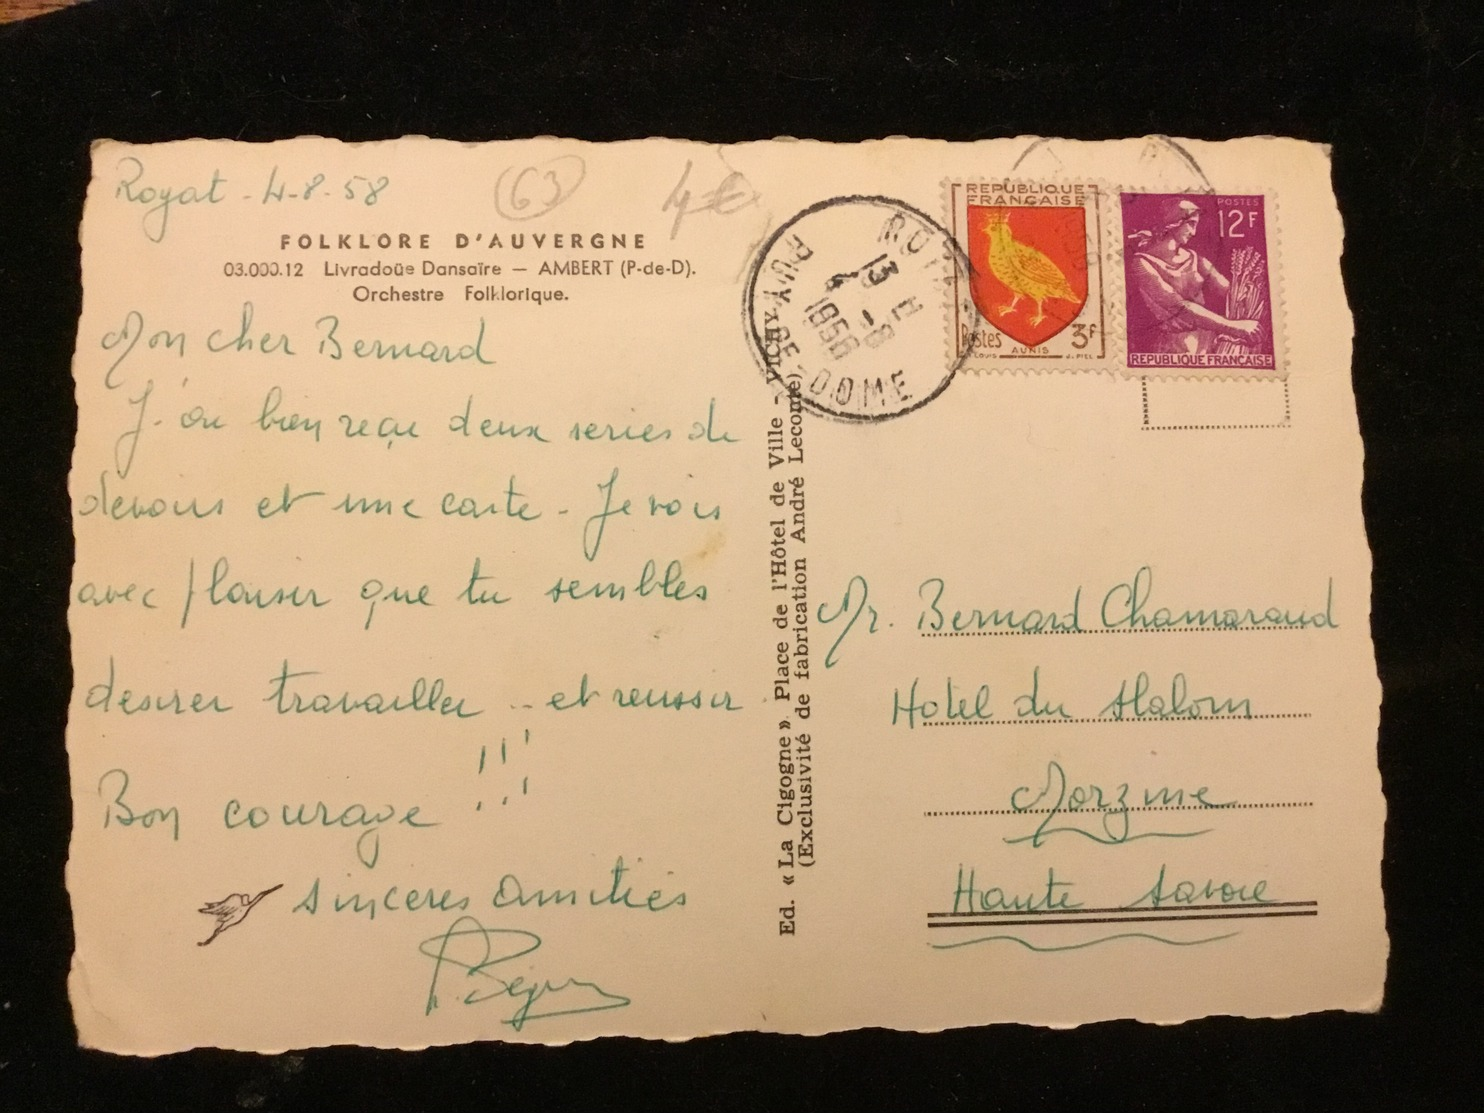 Royat - 4-8-58
63
4€
FOLKLORE D'AUVERGNE
03.000.12 Livradoüe Dansaïre — AMBERT (P-de-D).
Orchestre Folklorique.
Mon cher Bernard
J'ai bien reçu deux series de
devoirs et une carte - Je vois
avec plaisir que tu sembles
desirer travailler .. et reussir
!!!
Bon courage
sinceres amitiés
Ed. « La Cigogne » Place de l'Hôtel de Ville - VICHY
(Exclusivité de fabrication André Lecomte)
ROYAT
13 H
4 - 8
1958
PUY-DE-DOME
REPUBLIQUE
FRANÇAISE
Postes 3F
AUNIS
J. PIEL
POSTES
12F
REPUBLIQUE FRANÇAISE
Mr. Bernard Chamaraud
Hotel du Slalom
Morzine
Haute Savoie